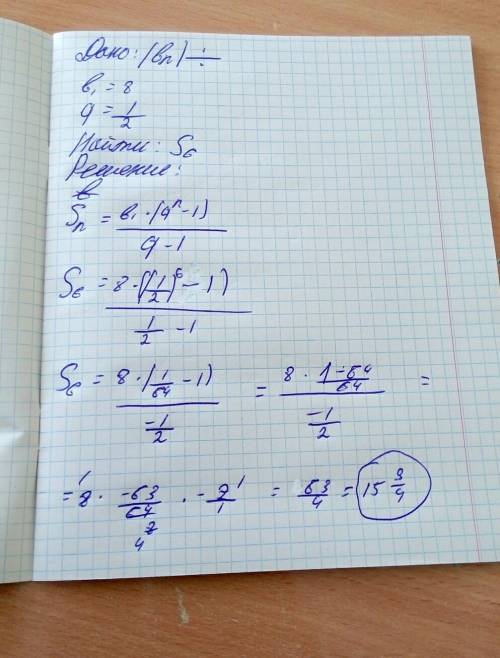 Дано: (bn) ÷
b₁ = 8
q = 1/2
Найти: S₆
Решение:
Sn = b₁·(qⁿ-1)/q-1
S₆ = 8·((1/2)⁶-1)/(1/2 -1)
S₆ = 8·(1/64 -1)/(-1/2) = 8·(1-64/64)/(-1/2) =
= 8 · -63/64 · -2/1 = 63/4 = 15 3/4